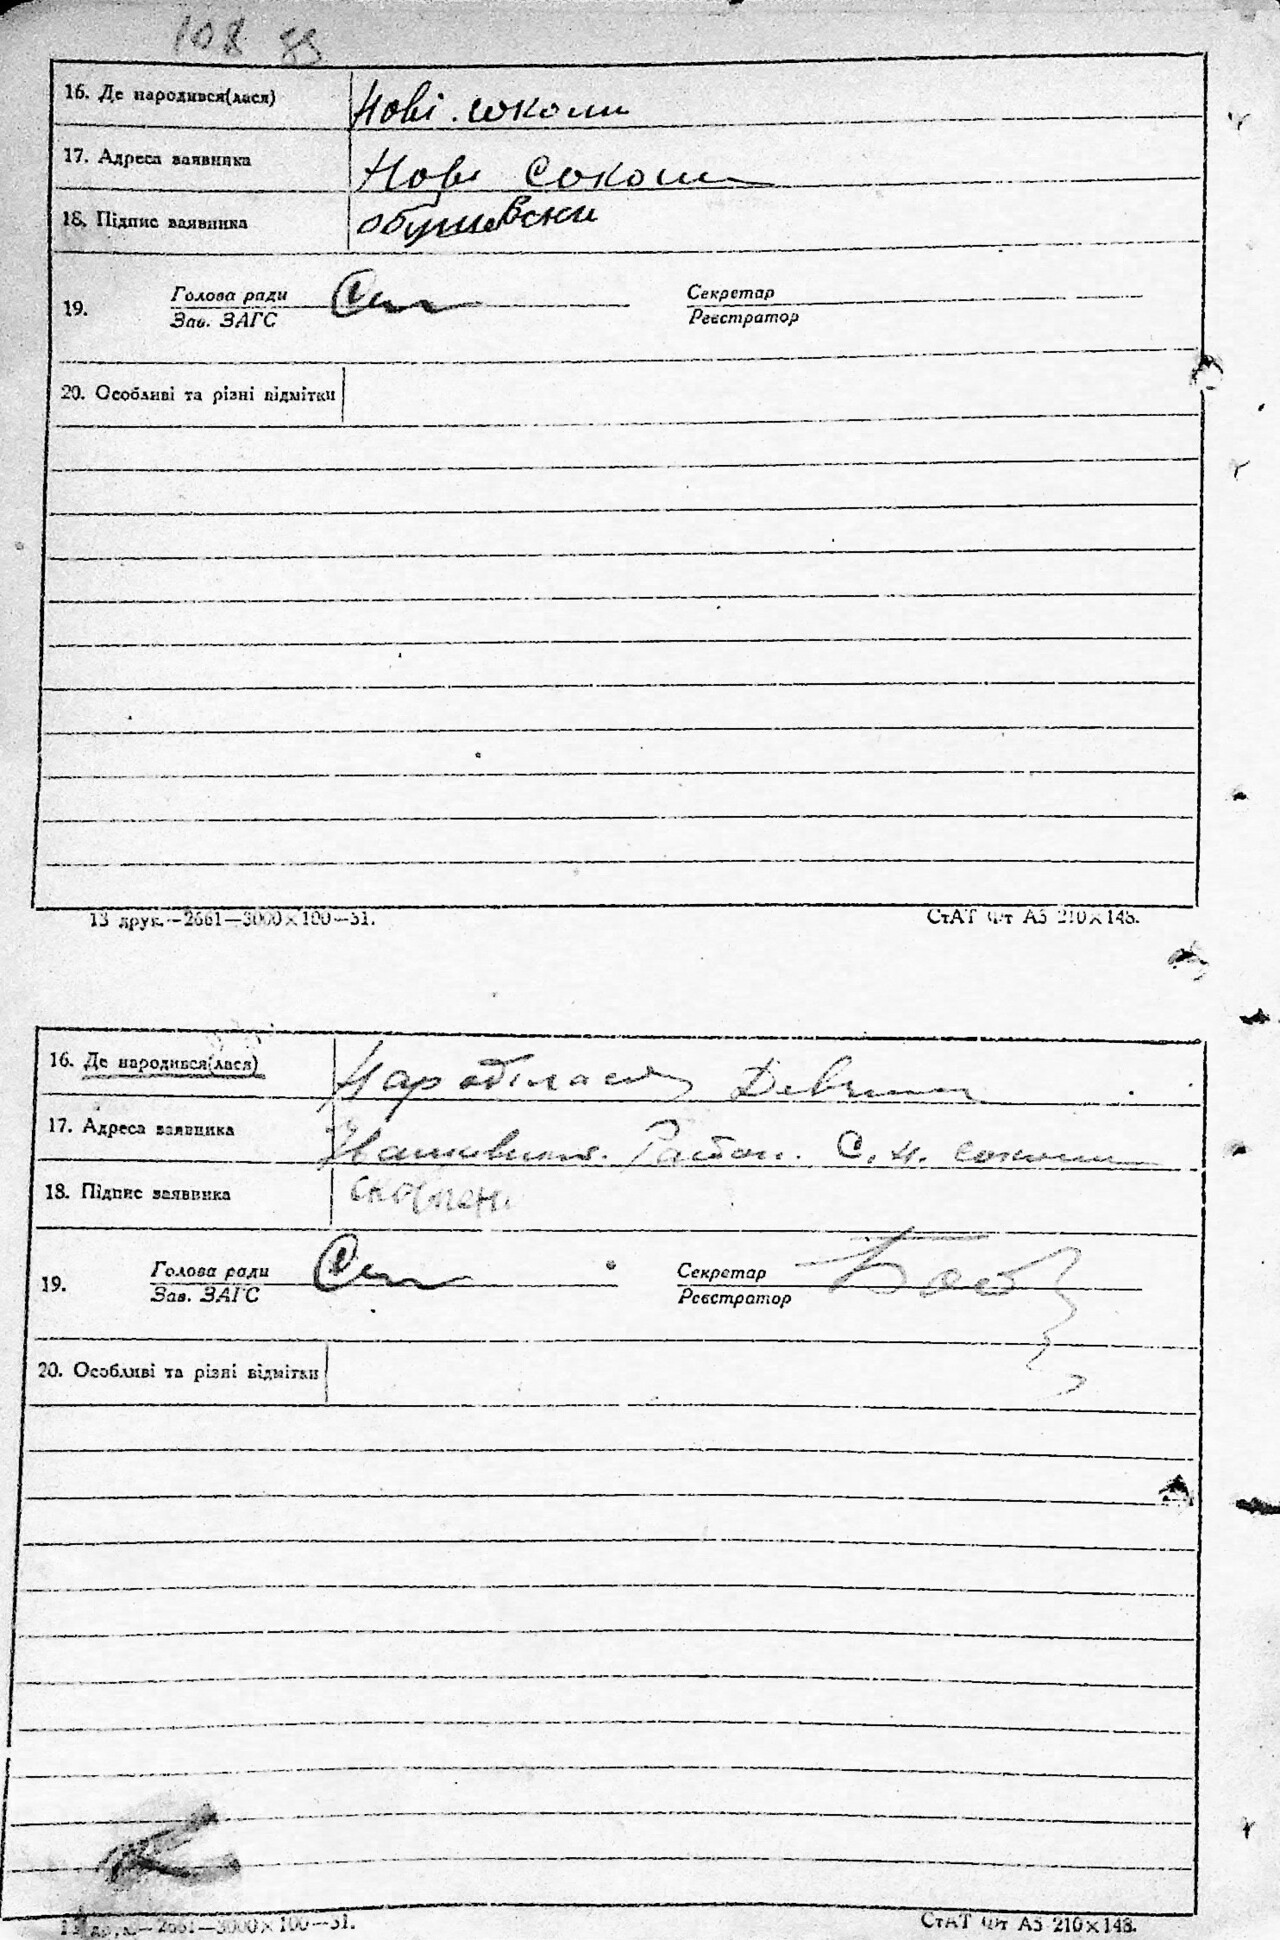 108 89
16. Де народився(лася) Нові. соколи
17. Адреса заявника Нові Соколи
18. Підпис заявника
19. Голова ради Секретар
Зав. ЗАГС Реєстратор
20. Особливі та різні відмітки
13 друк.—2661—3000×100—31.
СтАТ фт А5 210×148.
16. Де народився(лася) Народілася Девчина
17. Адреса заявника Іванивский. Район. С. Н. соколи
18. Підпис заявника
19. Голова ради Секретар
Зав. ЗАГС Реєстратор
20. Особливі та різні відмітки
13 друк.—2661—3000×100—31.
СтАТ фт А5 210×148.